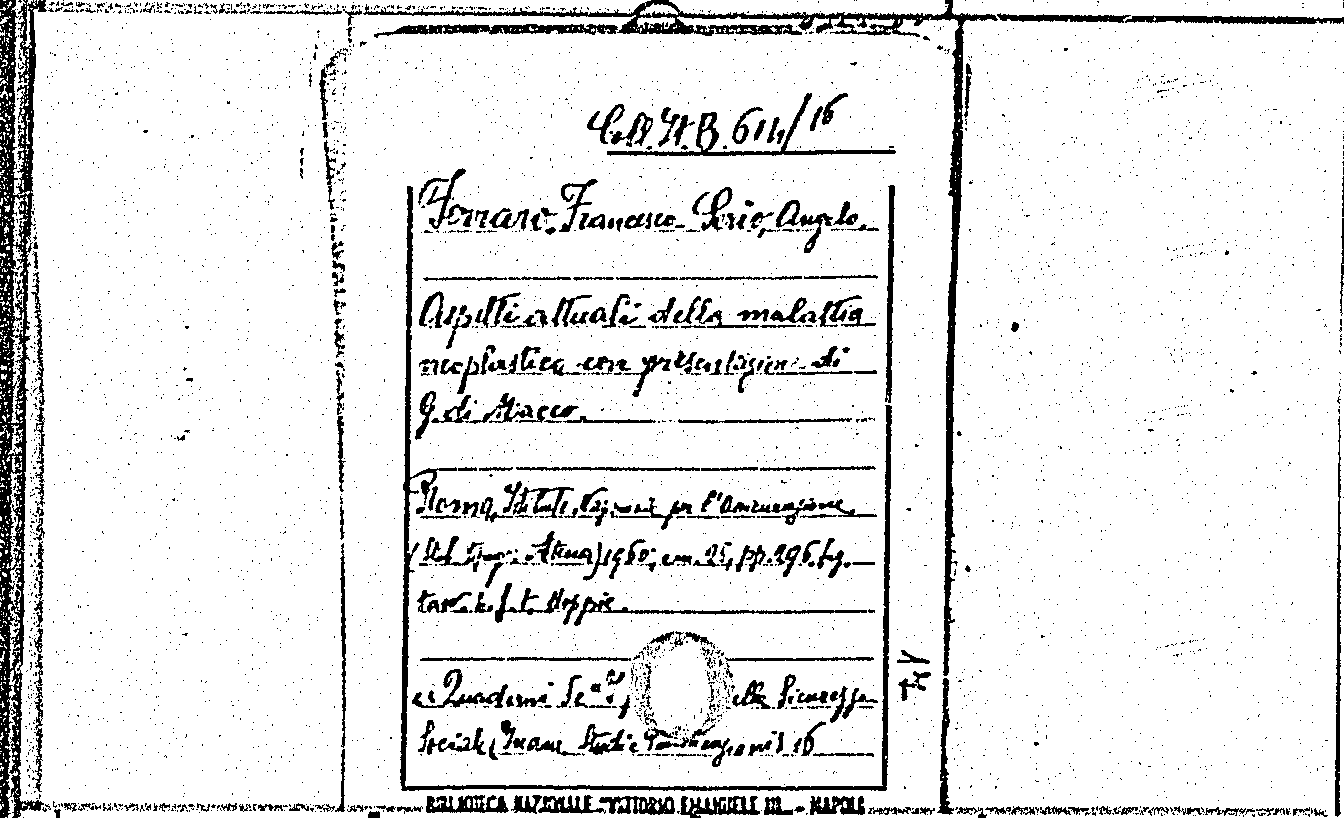 Coll. It. B. 614/16
Ferraro, Francesco - Serio, Angelo.
Aspetti attuali della malattia
neoplastica con presentazione di
G. di Macco.
Roma, Istituto Nazionale per l'Assicurazione
(Stab. Tipogr. Atena) 1960, cm. 25, pp. 296. fig.
tav. k. f. t. doppie.
« Quaderni elle Sicurezza
Sociale
BIBLIOTECA NAZIONALE "VITTORIO EMANUELE III" - NAPOLI